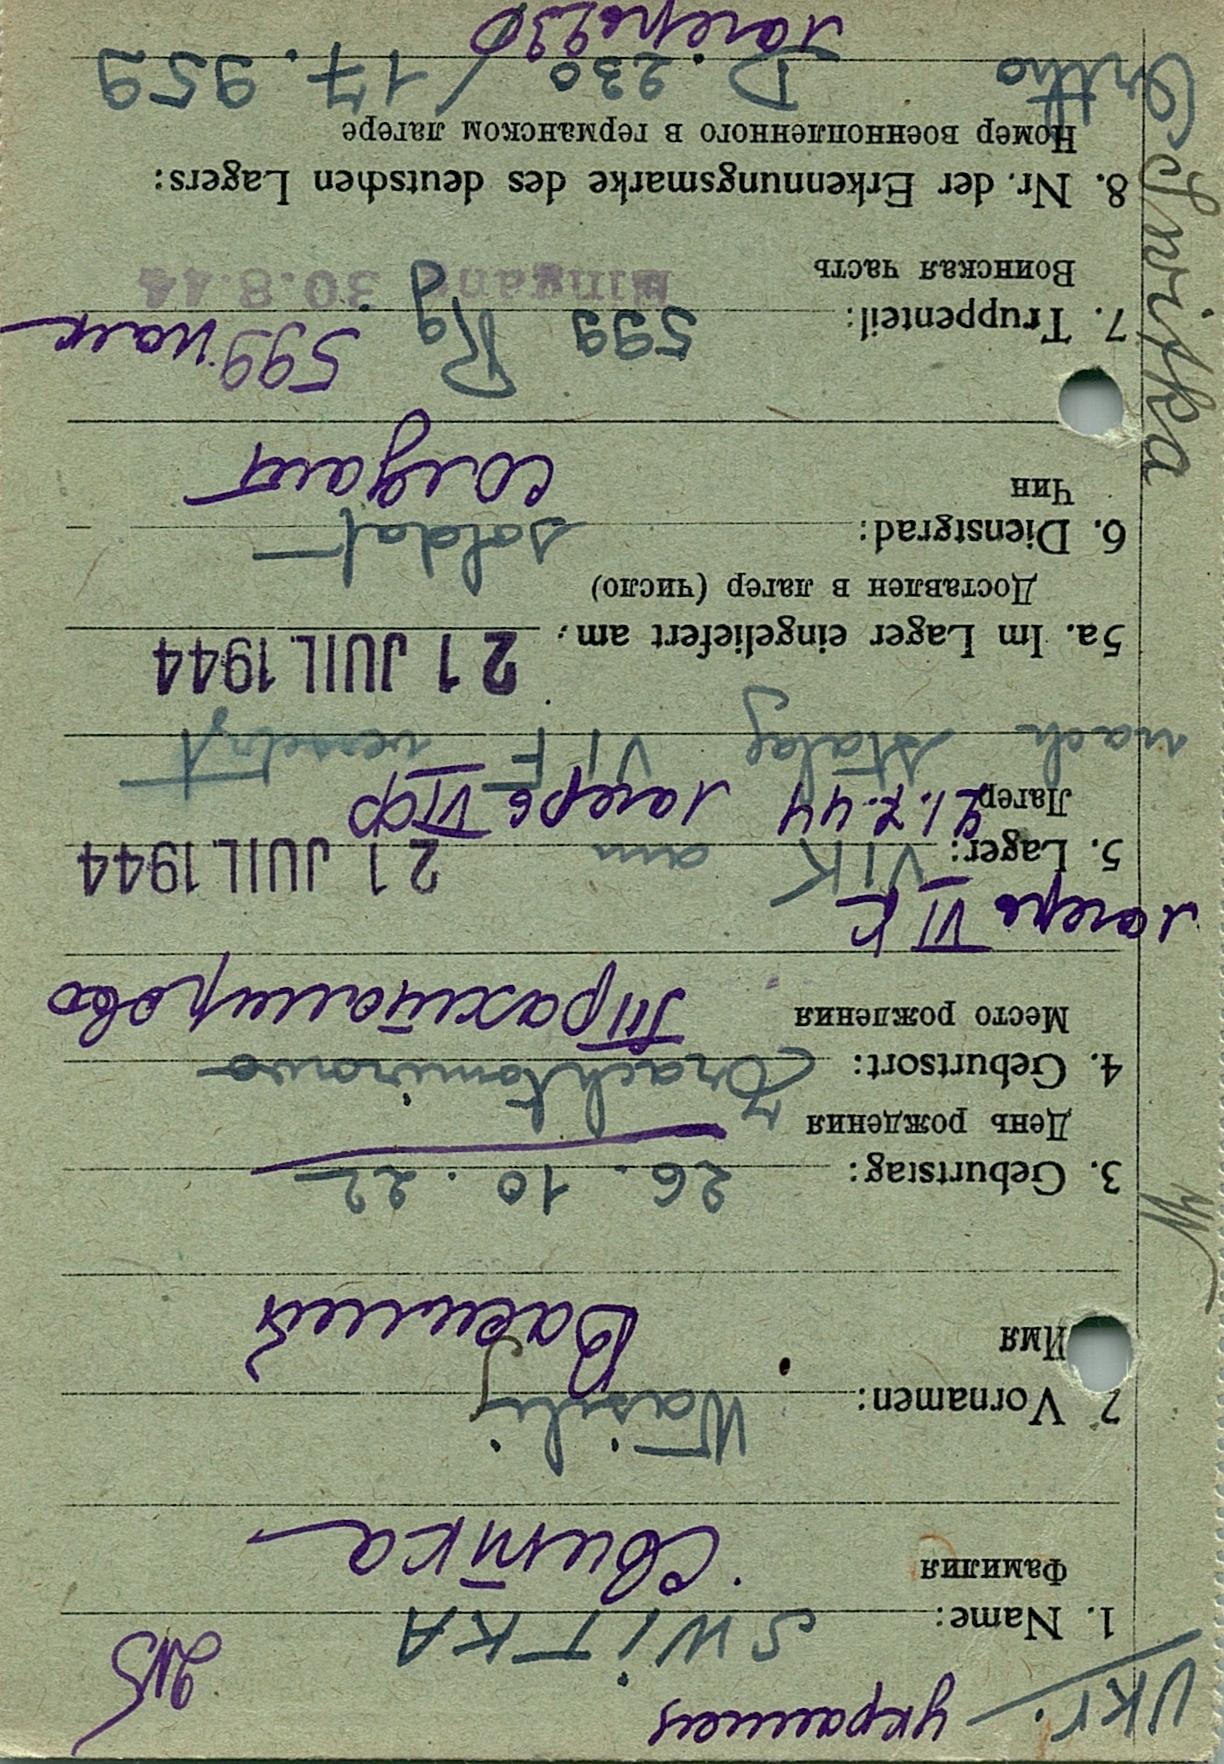 Ukr. украинец
1. Name: SWITKA
Фамилия Свитка
2 Vornamen: Wasilij
Имя Василий
3. Geburtstag: 26.10.22
День рождения
4. Geburtsort: Trachtomirowo
Место рождения Трахтомирово
лагерь VI К
5. Lager: VI K am 21 JUIL 1944
Лагер 21.7.44 лагерь VI Ф
nach Stalag VI F versetzt
5a. Im Lager eingeliefert am: 21 JUIL 1944
Доставлен в лагер (число)
6. Dienstgrad: soldat
Чин солдат
7. Truppenteil: 599 Rg 599 полк
Воинская часть Eingang 30.8.44
8. Nr. der Erkennungsmarke des deutschen Lagers:
Номер военнопленного в германском лагере
D. 230 / 17.959
лагерь 230
Switka